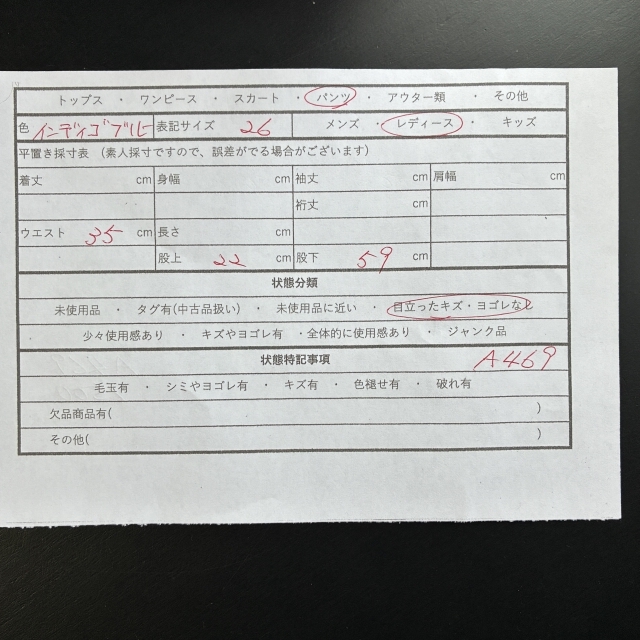 トップス ・ ワンピース ・ スカート ・ パンツ ・ アウター類 ・ その他
色 インディゴブルー 表記サイズ 26 メンズ ・ レディース ・ キッズ
平置き採寸表 (素人採寸ですので、誤差がでる場合がございます)
着丈 cm 身幅 cm 袖丈 cm 肩幅 cm
裄丈 cm
ウエスト 35 cm 長さ cm
股上 22 cm 股下 59 cm
状態分類
未使用品 ・ タグ有(中古品扱い) ・ 未使用品に近い ・ 目立ったキズ・ヨゴレなし
少々使用感あり ・ キズやヨゴレ有 ・全体的に使用感あり ・ ジャンク品
状態特記事項 A469
毛玉有 ・ シミやヨゴレ有 ・ キズ有 ・ 色褪せ有 ・ 破れ有
欠品商品有( )
その他( )